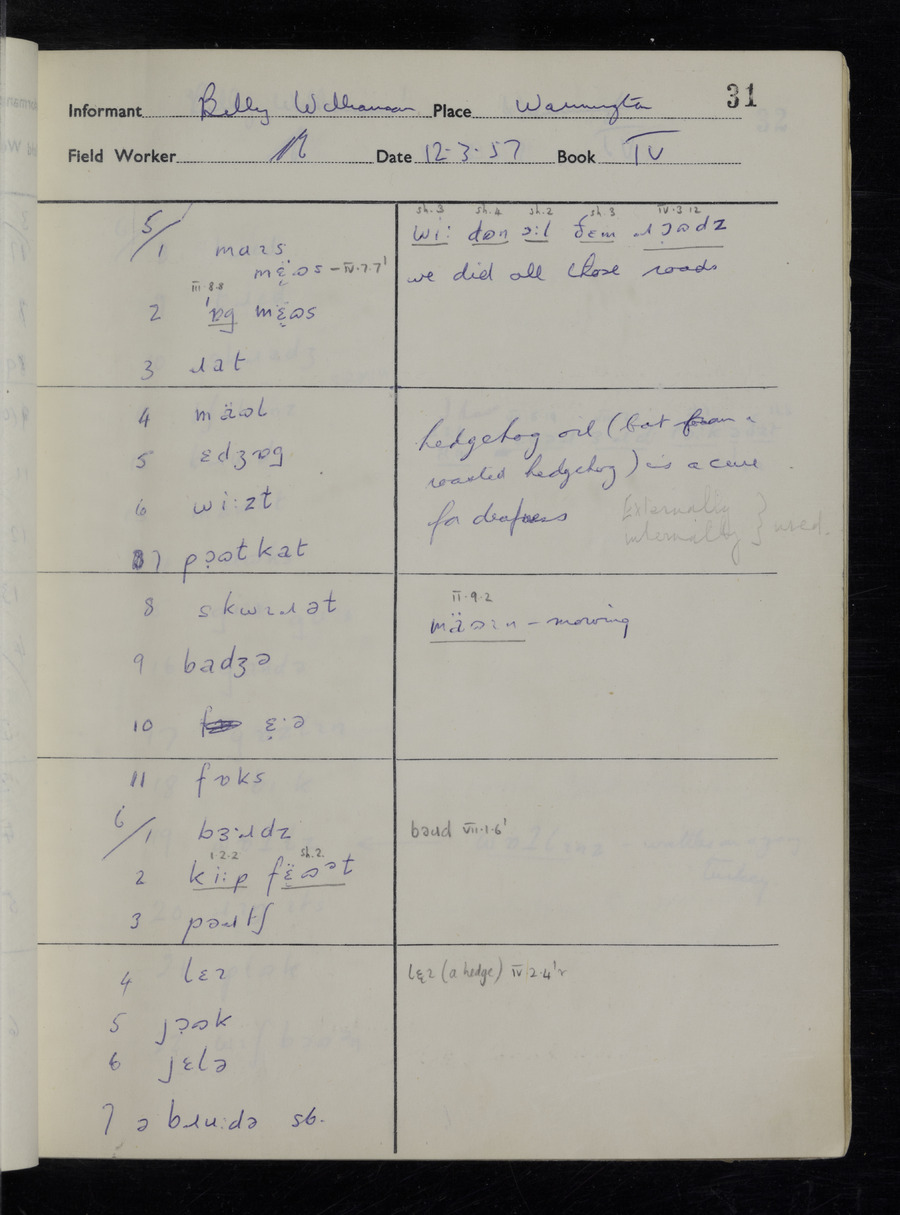 31
Informant Billy Williamson Place Warmington
Field Worker Date 12-3-57 Book IV
5/1 maɪs
mɛ̣̈ɷs – IV·7·7'
III 8·8
2 'ɒg mɛ̣̈ɷs
3 ɹat
sh. 3 sh. 4 sh. 2 sh. 3 IV·3 12
wi: dɷn ɔ:l ðɛm ɹɔ̣ɷdz
we did all those roads
4 mäɷl
5 ɛdʒɒg
6 wi:zt
7 pɔ̣ɷtkat
hedgehog oil (bat from a
roasted hedgehog) is a cure
for deafness
Externally
internally } used.
8 skwɪɹət
9 badʒə
10 ɛ̣:ə
II·9·2
mäɷɪn – mowing
11 fɒks
6/1 bɜ:ɹdz
bəɹd VII·1·6'
1·2·2 sh. 2.
2 ki:p fɛ̣̈ɷət
3 pəɹtʃ
4 lɛɪ
5 jɔ̣ɷk
6 jɛlə
7 ə bɹu:də sb.
lɛ̣ɪ (a hedge) IV 2·4'r